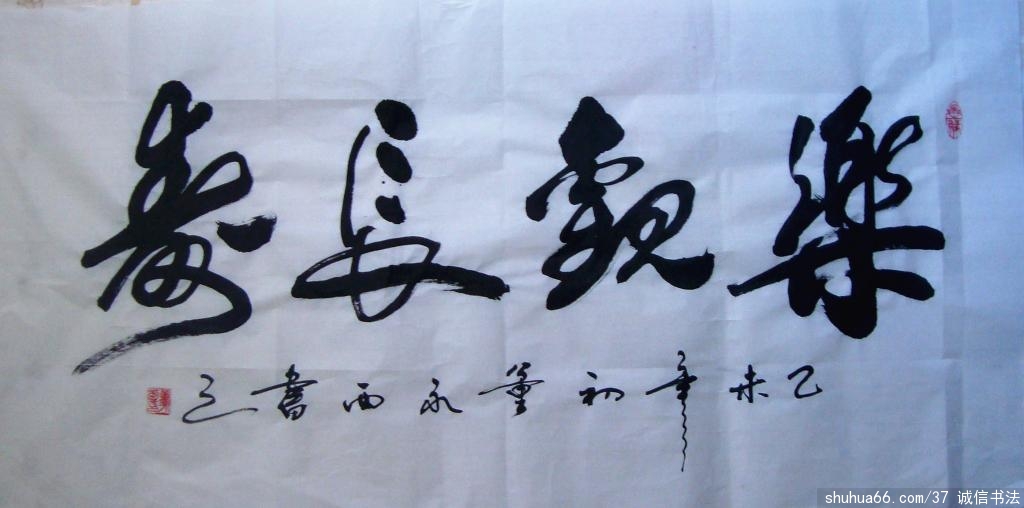 樂觀長壽
乙未年初董永西書
shuhua66.com/37 诚信书法